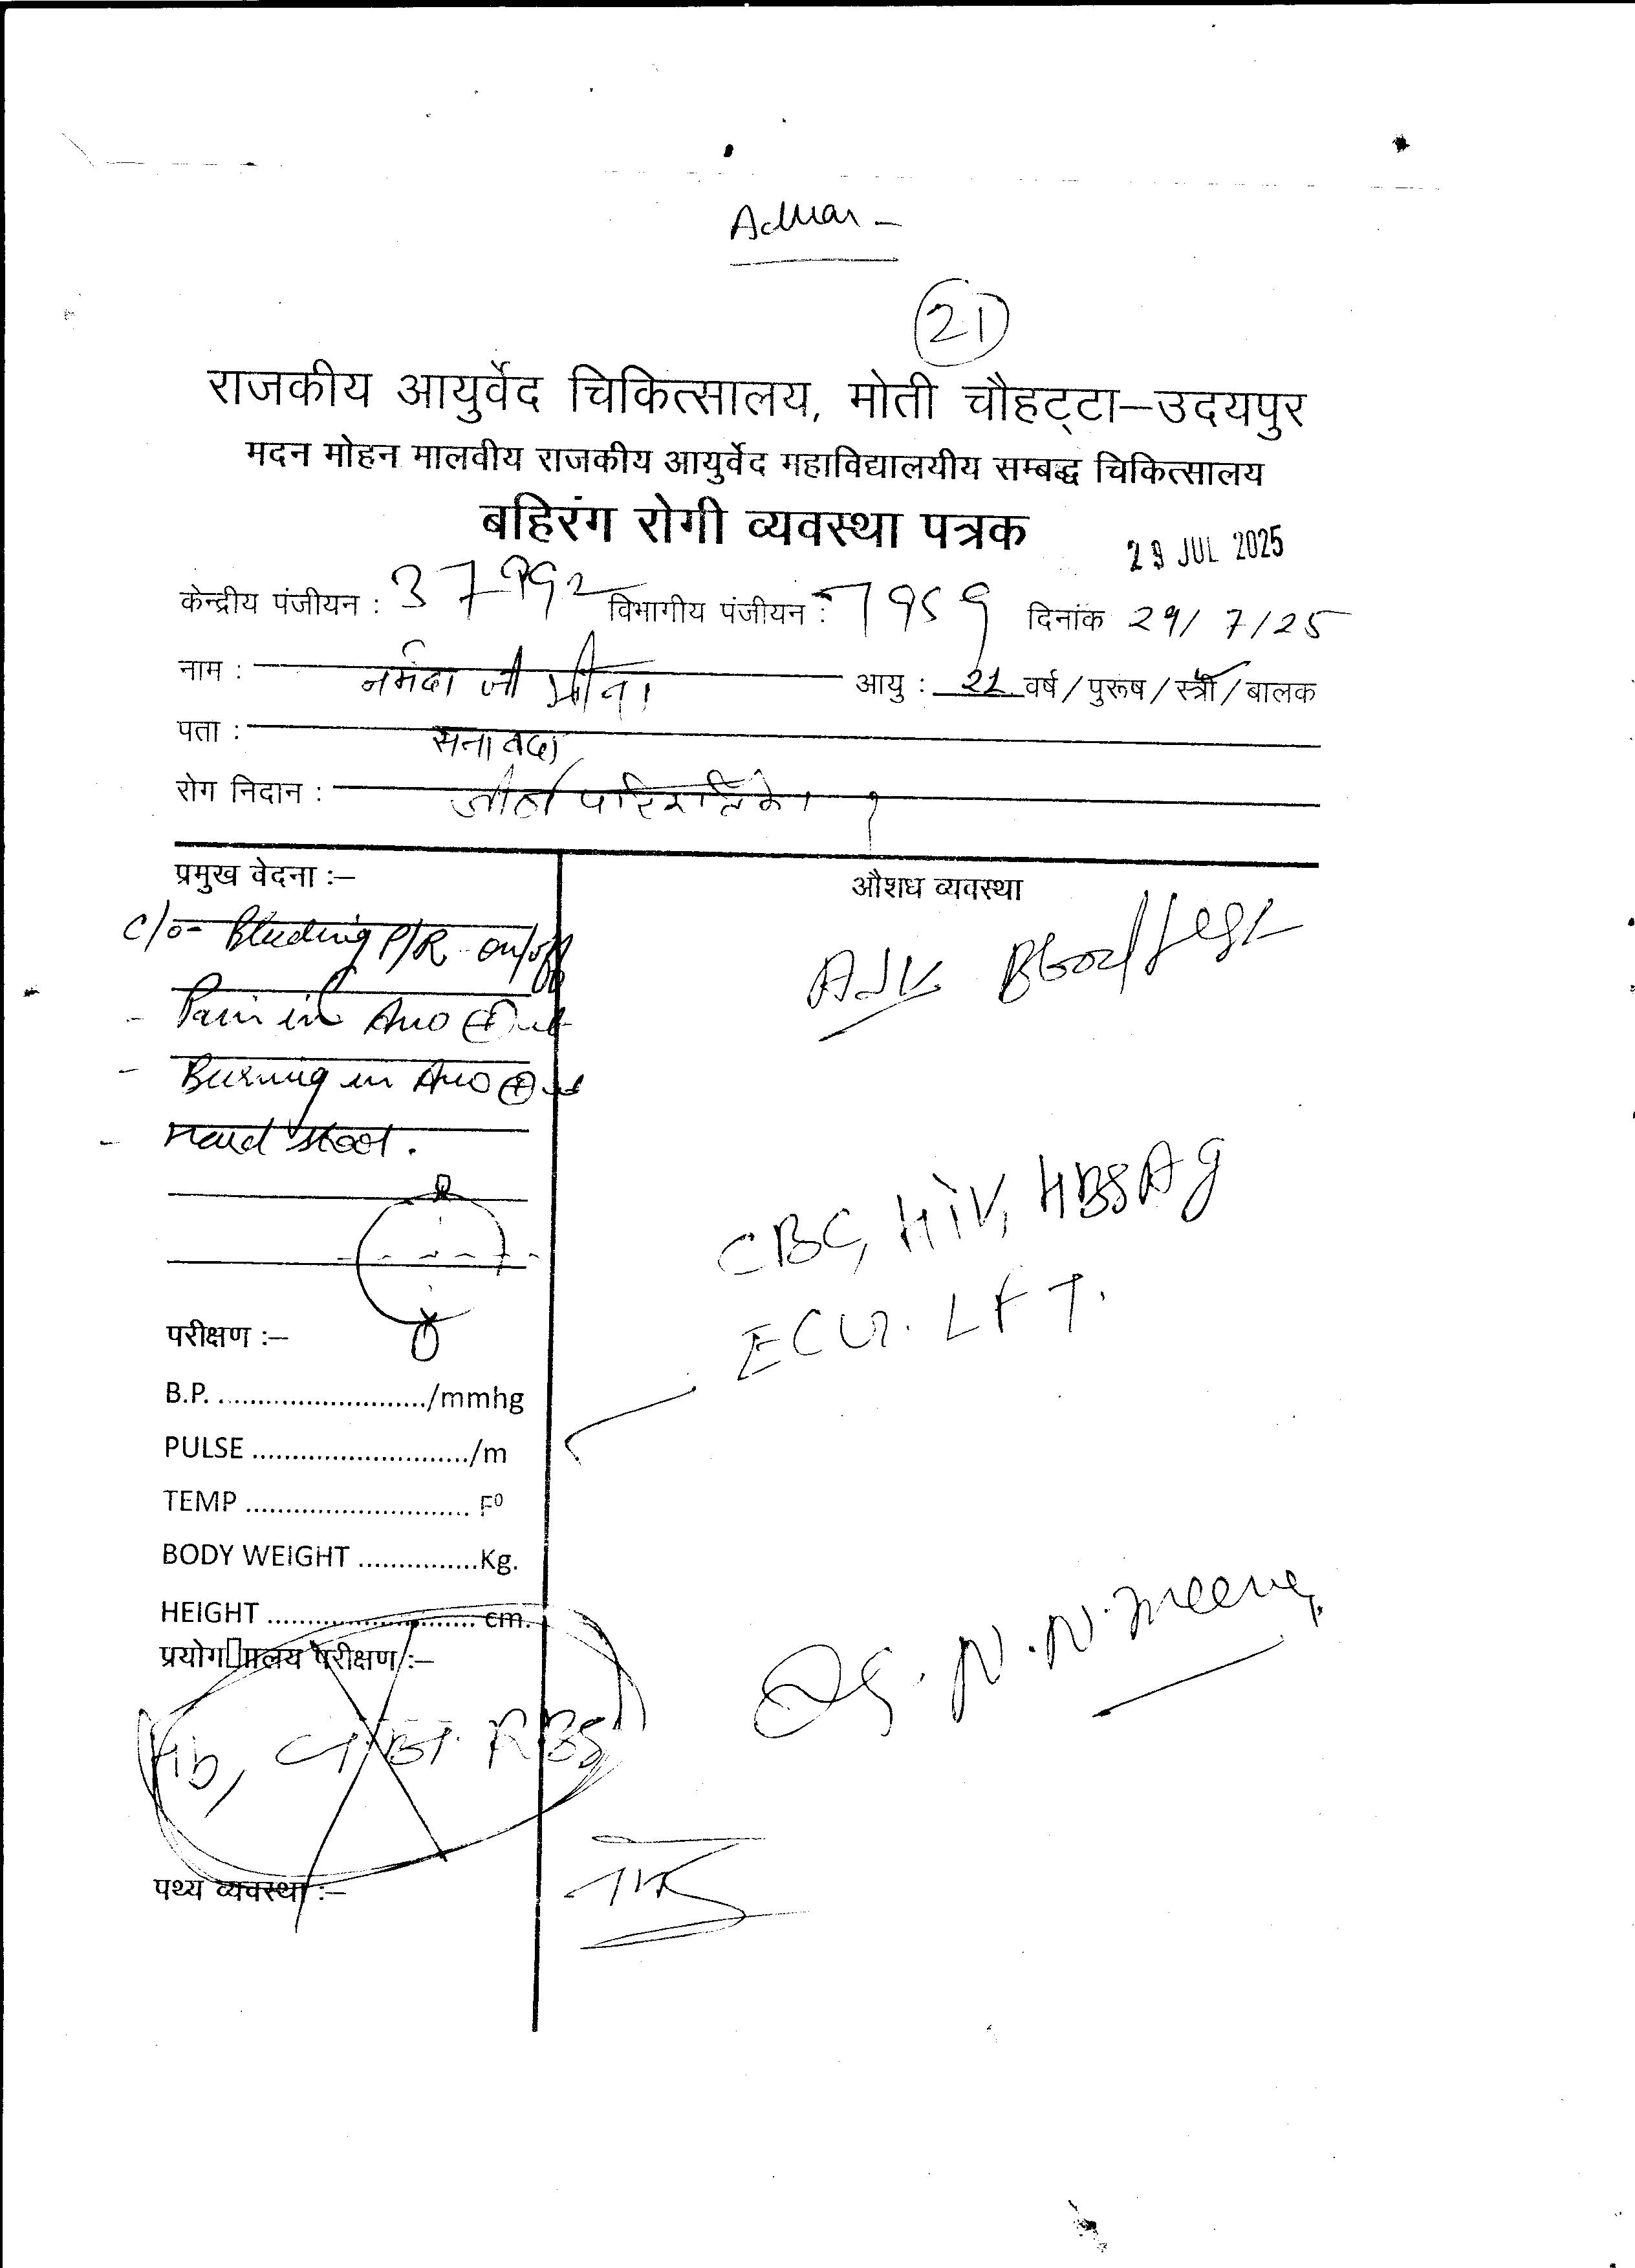 Adhar –
21
राजकीय आयुर्वेद चिकित्सालय, मोती चौहट्‌टा–उदयपुर
मदन मोहन मालवीय राजकीय आयुर्वेद महाविद्यालयीय सम्बद्ध चिकित्सालय
बहिरंग रोगी व्यवस्था पत्रक
29 JUL 2025
केन्द्रीय पंजीयन : 37992 विभागीय पंजीयन : 7959 दिनांक 29/7/25
नाम : नर्मदा जी मीना आयु : 21 वर्ष/पुरूष/स्त्री/बालक
पता : सनावदा
रोग निदान : जीर्ण परिकर्तिका
प्रमुख वेदना :–
औशध व्यवस्था
c/o- Bleeding P/R on/off
Adv. Blood test
- Pain in Ano ⊕
- Burning in Ano ⊕
- Hard stool.
CBC, HIV, HBSAg
ECG. LFT.
परीक्षण :–
B.P. ........................../mmhg
PULSE .........................../m
TEMP ............................ F⁰
BODY WEIGHT ...............Kg.
HEIGHT .......................... cm.
प्रयोग▯ालय परीक्षण :–
Hb, CT. BT. RBS
Dr. N. N. Meena
पथ्य व्यवस्था :–